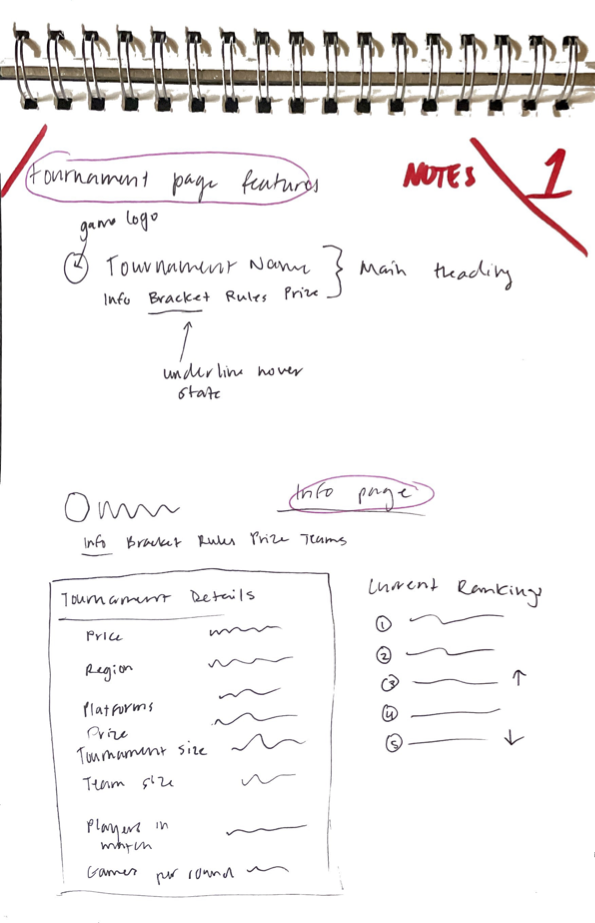 tournament page features
NOTES
1
game logo
Tournament Name
Main Heading
Info Bracket Rules Prize
underline hover
state
Info page
Info Bracket Rules Prize Teams
Tournament Details
Price
Region
Platforms
Prize
Tournament size
Team size
Players in
match
Games per round
Current Rankings
1
2
3 ↑
4
5 ↓